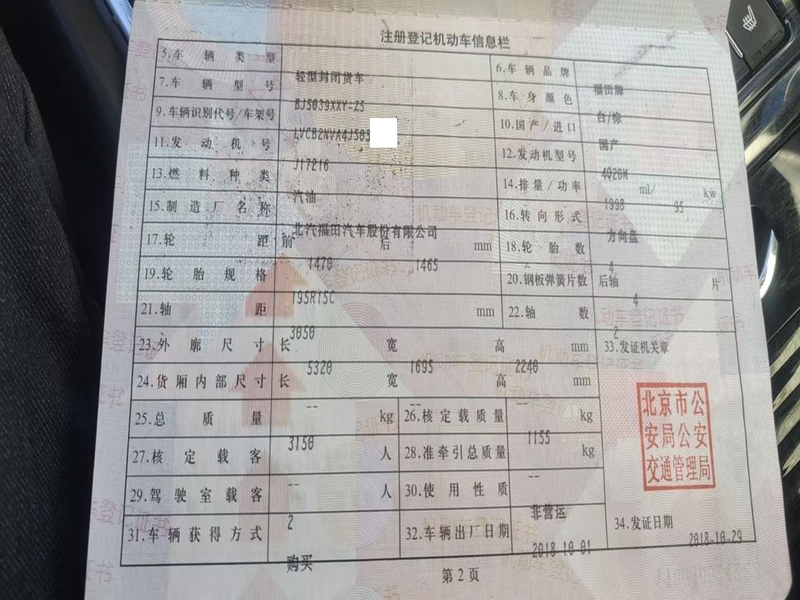 注册登记机动车信息栏
5.车辆类型 轻型封闭货车 6.车辆品牌 福田牌
7.车辆型号 BJ5039XXY-25 8.车身颜色 白/棕
9.车辆识别代号/车架号 LVCB2NVA4J503 10.国产/进口 国产
11.发动机号 J17216 12.发动机型号 4G20M
13.燃料种类 汽油 14.排量/功率 1998 ml/ 95 kw
15.制造厂名称 北汽福田汽车股份有限公司 16.转向形式 方向盘
17.轮距 前 1470 后 1465 mm 18.轮胎数 4
19.轮胎规格 195R15C 20.钢板弹簧片数 后轴 4 片
21.轴距 3050 mm 22.轴数 2
23.外廓尺寸 长 5320 宽 1695 高 2240 mm 33.发证机关章
24.货厢内部尺寸 长 -- 宽 -- 高 -- mm
北京市公
安局公安
交通管理局
25.总质量 3150 kg 26.核定载质量 1155 kg
27.核定载客 -- 人 28.准牵引总质量 -- kg
29.驾驶室载客 2 人 30.使用性质 非营运
31.车辆获得方式 购买 32.车辆出厂日期 2018-10-01 34.发证日期 2018-10-29
第2页